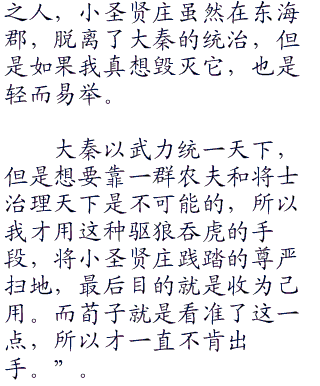 之人，小圣贤庄虽然在东海
郡，脱离了大秦的统治，但
是如果我真想毁灭它，也是
轻而易举。
大秦以武力统一天下，
但是想要靠一群农夫和将士
治理天下是不可能的，所以
我才用这种驱狼吞虎的手
段，将小圣贤庄践踏的尊严
扫地，最后目的就是收为己
用。而荀子就是看准了这一
点，所以才一直不肯出
手。”。